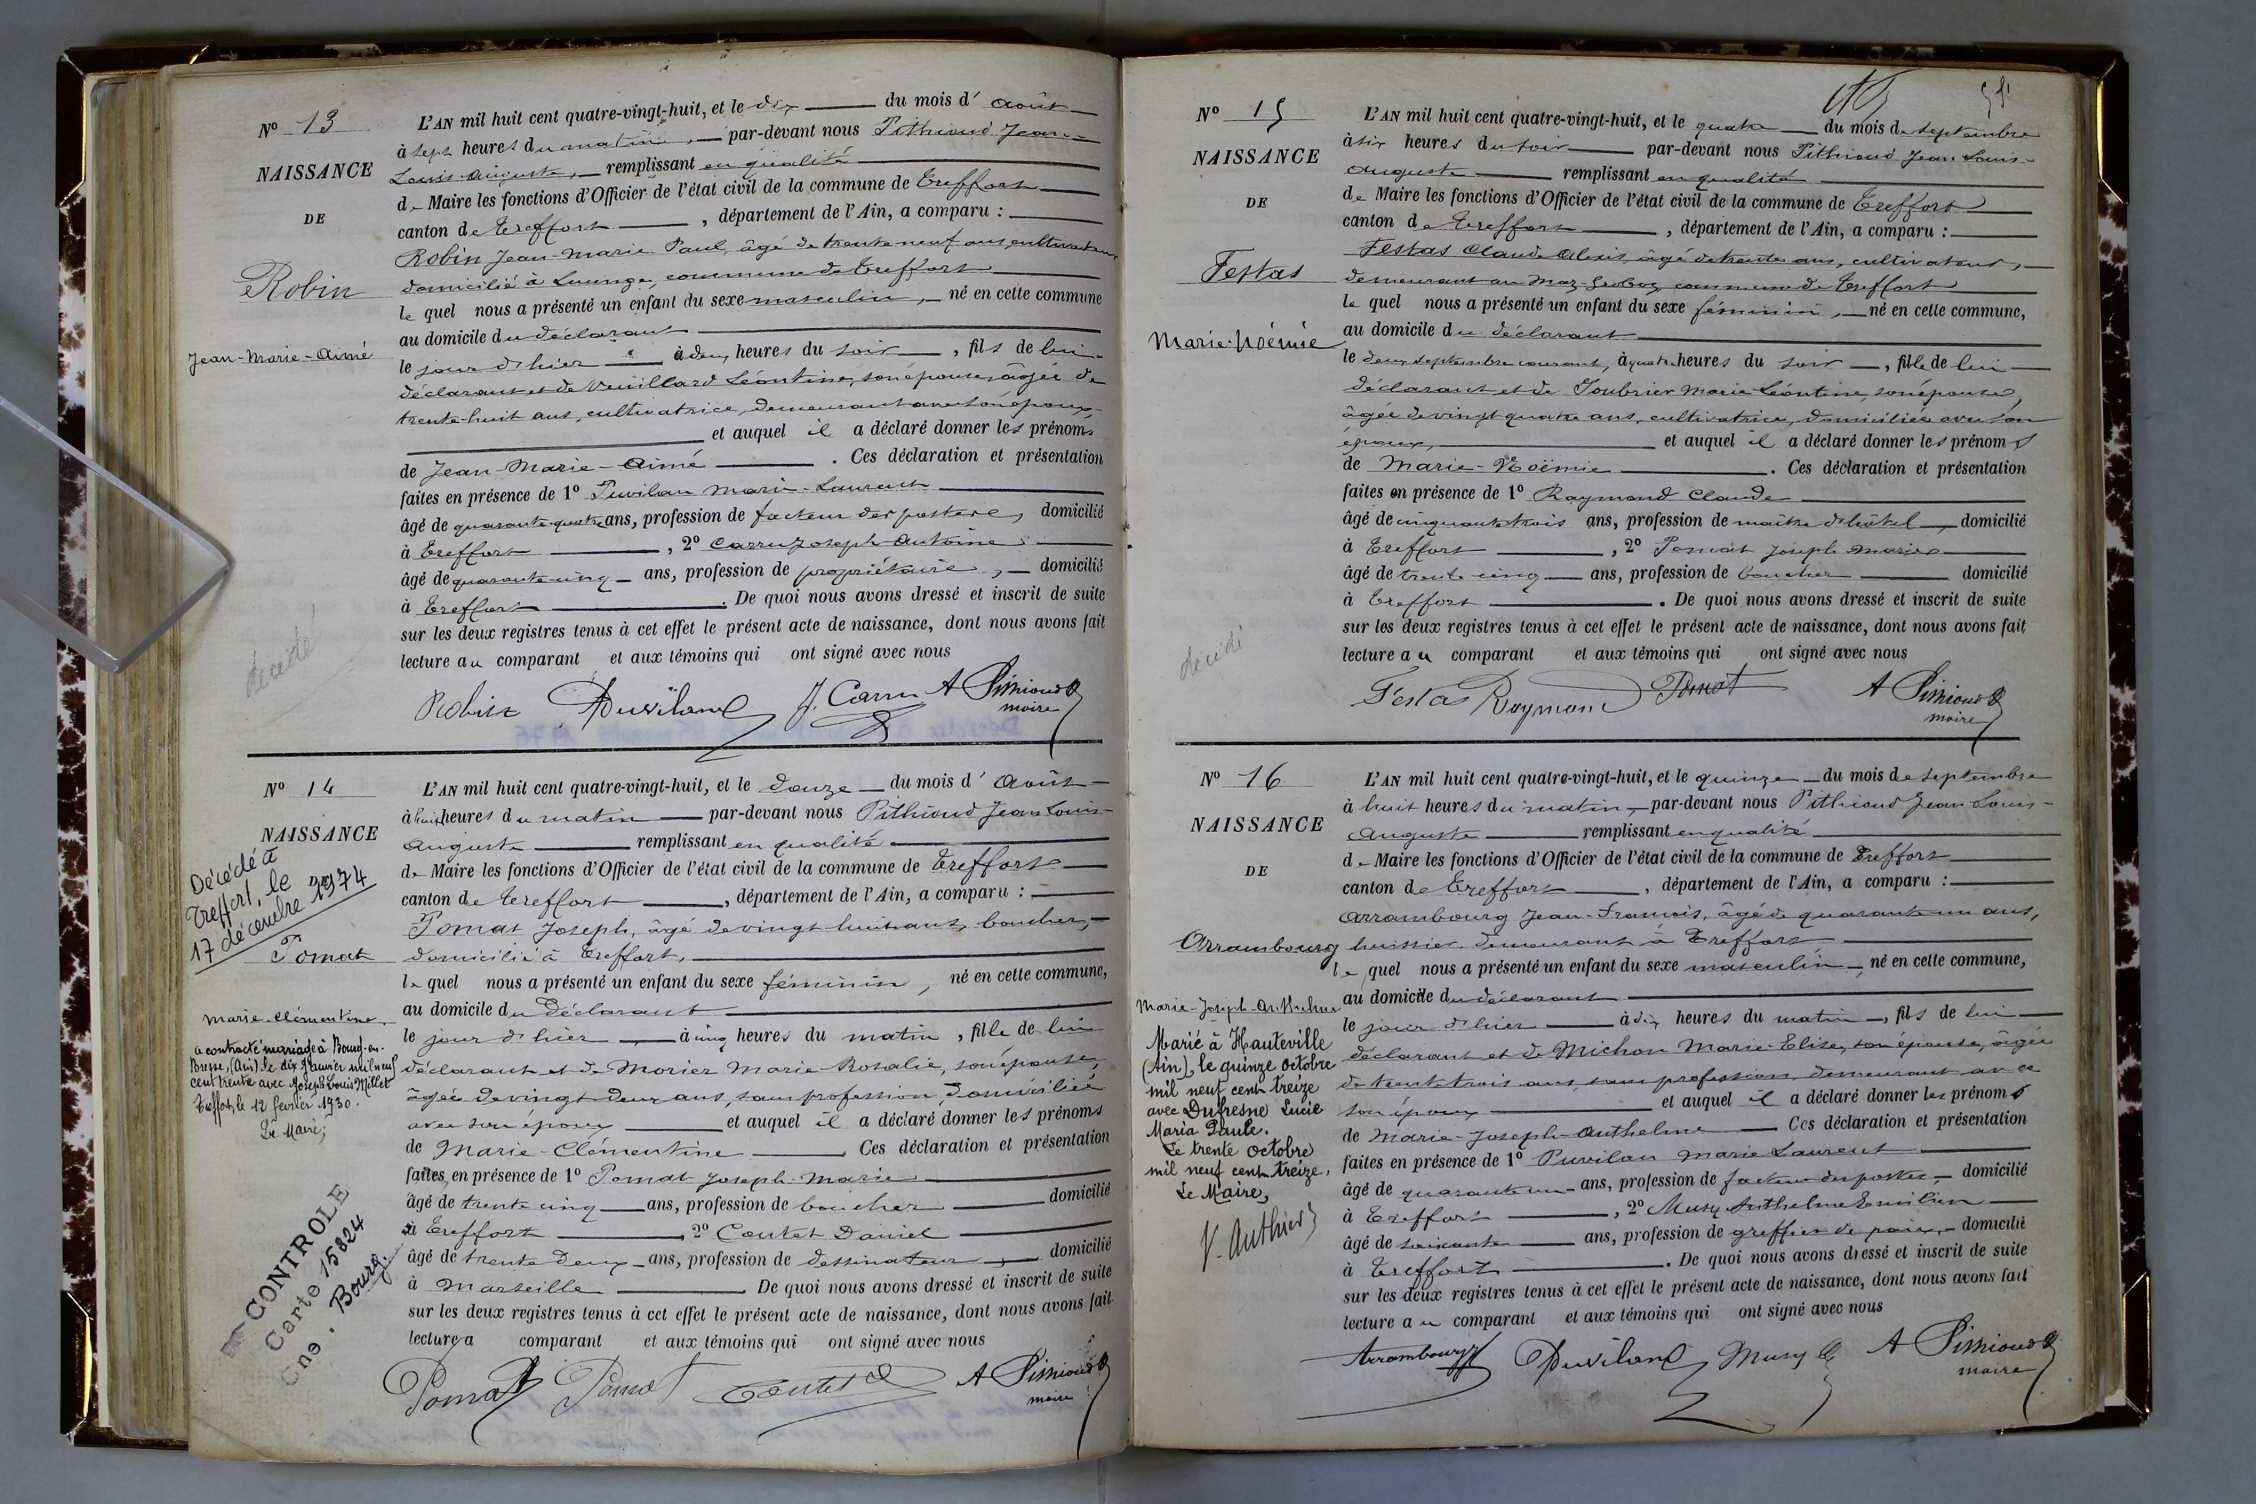 Nº 13
NAISSANCE
DE
Robin
Jean-Marie-Aimé
décédé
L'AN mil huit cent quatre-vingt-huit, et le dix du mois d' août
à sept heures du matin, par-devant nous Pithioud Jean-
Louis-Auguste, remplissant en qualité
de Maire les fonctions d'Officier de l'état civil de la commune de Treffort
canton de Treffort, département de l'Ain, a comparu :
Robin Jean-Marie Paul, âgé de trente neuf ans, cultivateur
domicilié à Lucinge, commune de Treffort
le quel nous a présenté un enfant du sexe masculin, né en cette commune
au domicile du déclarant
le jour d'hier à deux heures du soir, fils de lui-
déclarant et de Veuillard Léontine, son épouse, âgée de
trente-huit ans, cultivatrice, demeurant avec son époux,
et auquel il a déclaré donner les prénoms
de Jean-Marie-Aimé. Ces déclaration et présentation
faites en présence de 1º Puvilan Marie-Laurent
âgé de quarante quatre ans, profession de facteur des postes, domicilié
à Treffort, 2º Carru Joseph Antoine
âgé de quarante cinq ans, profession de propriétaire, domicilié
à Treffort. De quoi nous avons dressé et inscrit de suite
sur les deux registres tenus à cet effet le présent acte de naissance, dont nous avons fait
lecture au comparant et aux témoins qui ont signé avec nous
Robin Puviland J. Carru A Pithioud
maire
Nº 14
NAISSANCE
Décédé à
Treffort, le
17 décembre 1974
Pomat
Marie-Clémentine
a contracté mariage à Bourg-en-
Bresse, (Ain) le dix janvier mil neuf
cent trente avec Joseph Louis Millet
Treffort, le 12 février 1930.
Le Maire;
CONTROLE
Carte 15824
Cne. Bourg.
L'AN mil huit cent quatre-vingt-huit, et le douze du mois d' Août
à huit heures du matin par-devant nous Pithioud Jean Louis-
Auguste remplissant en qualité
de Maire les fonctions d'Officier de l'état civil de la commune de Treffort
canton de Treffort, département de l'Ain, a comparu :
Pomat Joseph, âgé de vingt huit ans, boucher,
domicilié à Treffort,
le quel nous a présenté un enfant du sexe féminin, né en cette commune,
au domicile du déclarant
le jour d'hier, à cinq heures du matin, fille de lui
déclarant et de Morier Marie-Rosalie, son épouse,
âgée de vingt deux ans, sans profession, domiciliée
avec son époux et auquel il a déclaré donner les prénoms
de Marie-Clémentine. Ces déclaration et présentation
faites en présence de 1º Pomat Joseph-Marie
âgé de trente cinq ans, profession de boucher domicilié
à Treffort 2º Coutet Daniel
âgé de trente deux ans, profession de dessinateur, domicilié
à Marseille. De quoi nous avons dressé et inscrit de suite
sur les deux registres tenus à cet effet le présent acte de naissance, dont nous avons fait
lecture a comparant et aux témoins qui ont signé avec nous
Pomat Pomat Coutet D A Pithioud
maire
Nº 15
NAISSANCE
DE
Festas
Marie-Noémie
décédé
L'AN mil huit cent quatre-vingt-huit, et le quatre du mois de septembre
à six heures du soir par-devant nous Pithioud Jean Louis-
Auguste remplissant en qualité
de Maire les fonctions d'Officier de l'état civil de la commune de Treffort
canton de Treffort, département de l'Ain, a comparu :
Festas Claude Alexis, âgé de trente ans, cultivateur,
demeurant au commune de Treffort
le quel nous a présenté un enfant du sexe féminin, né en cette commune,
au domicile du déclarant
le deux septembre courant, à quatre heures du soir, fille de lui
déclarant et de Joubrier Marie Léontine, son épouse,
âgée de vingt quatre ans, cultivatrice, domiciliée avec son
époux, et auquel il a déclaré donner les prénoms
de Marie-Noëmie. Ces déclaration et présentation
faites en présence de 1º Raymond Claude
âgé de cinquante trois ans, profession de maître d'hôtel, domicilié
à Treffort, 2º Pomat Joseph Marie
âgé de trente cinq ans, profession de boucher domicilié
à Treffort. De quoi nous avons dressé et inscrit de suite
sur les deux registres tenus à cet effet le présent acte de naissance, dont nous avons fait
lecture au comparant et aux témoins qui ont signé avec nous
Festas Raymond Pomat A Pithioud
maire
Nº 16
NAISSANCE
DE
Arrambourg
Marie-Joseph-Anthelme
Marié à Hauteville
(Ain), le quinze octobre
mil neuf cent treize
avec Dufresne Lucie
Maria Paule.
Le trente octobre
mil neuf cent treize.
Le Maire,
V. Authier
L'AN mil huit cent quatre-vingt-huit, et le quinze du mois de septembre
à huit heures du matin, par-devant nous Pithioud Jean Louis-
Auguste remplissant en qualité
de Maire les fonctions d'Officier de l'état civil de la commune de Treffort
canton de Treffort, département de l'Ain, a comparu :
Arrambourg Jean-François, âgé de quarante un ans,
huissier demeurant à Treffort
le quel nous a présenté un enfant du sexe masculin, né en cette commune,
au domicile du déclarant
le jour d'hier à dix heures du matin, fils de lui
déclarant et de Michon Marie-Elise, son épouse, âgée
de trente trois ans, sans profession, demeurant avec
son époux et auquel il a déclaré donner les prénoms
de Marie-Joseph-Anthelme Ces déclaration et présentation
faites en présence de 1º Puvilan Marie Laurent
âgé de quarante un ans, profession de facteur des postes, domicilié
à Treffort, 2º Musy Anthelme Emilien
âgé de soixante ans, profession de greffier de paix, domicilié
à Treffort. De quoi nous avons dressé et inscrit de suite
sur les deux registres tenus à cet effet le présent acte de naissance, dont nous avons fait
lecture au comparant et aux témoins qui ont signé avec nous
Arrambourg Puviland Musy A Pithioud
maire